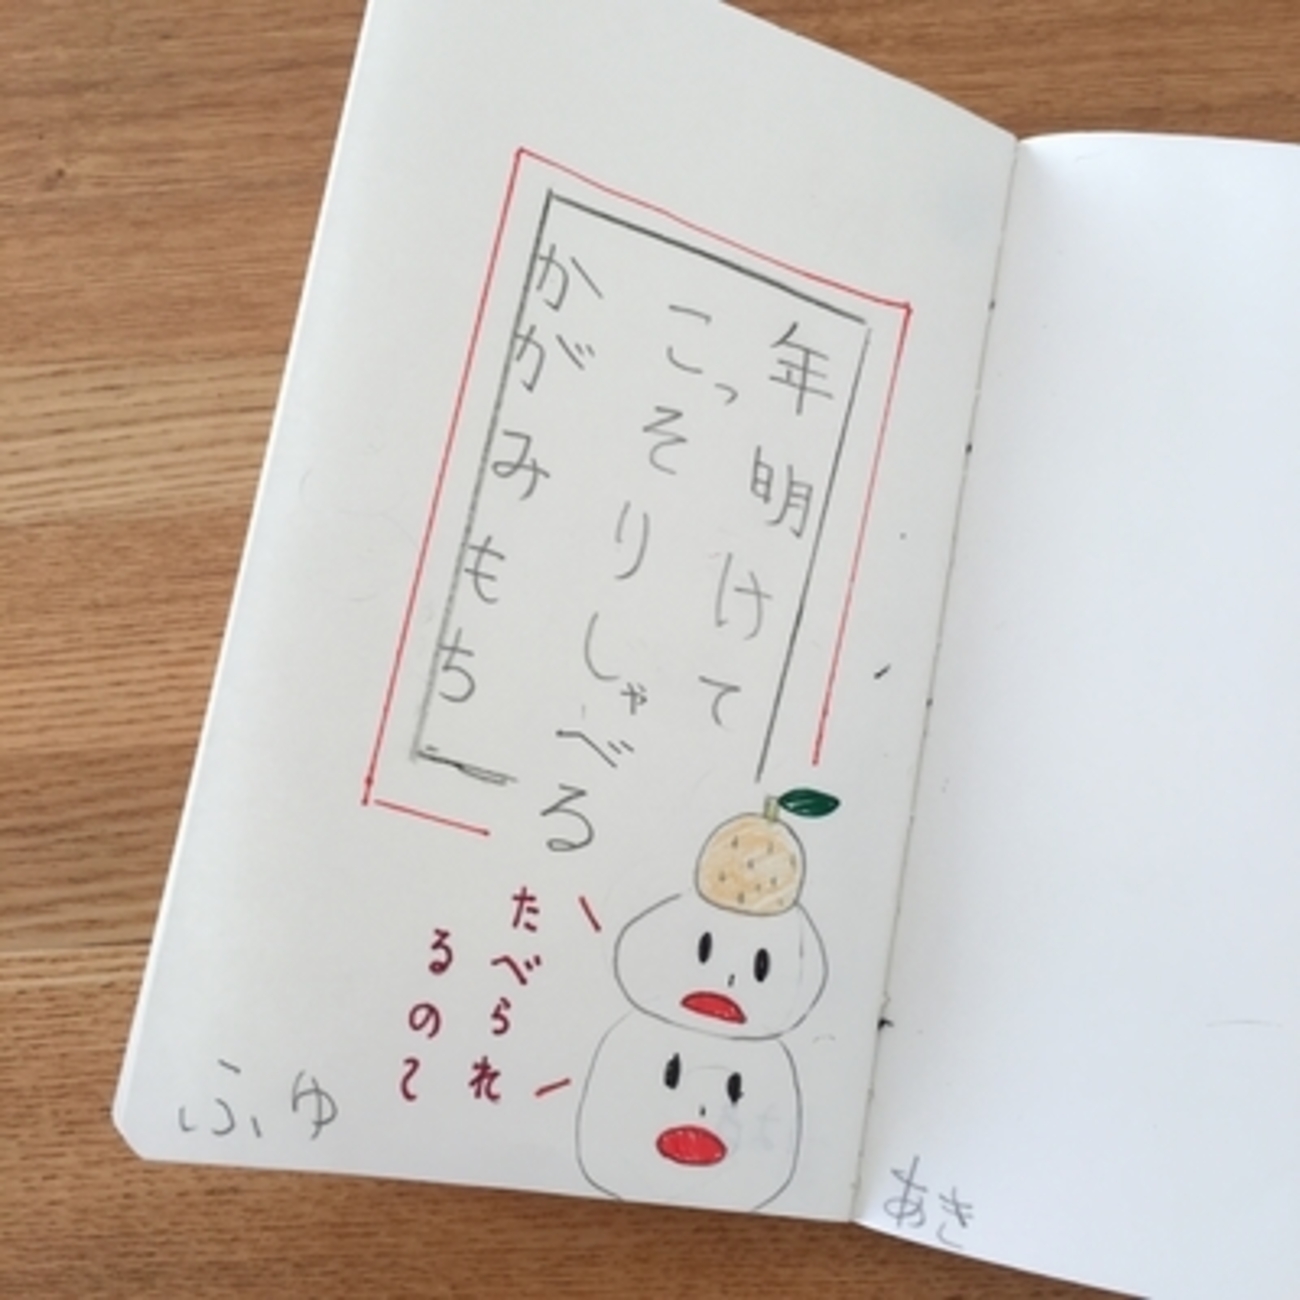 年明けて
こっそりしゃべる
かがみもち
たべられ
るので
ふゆ
あき